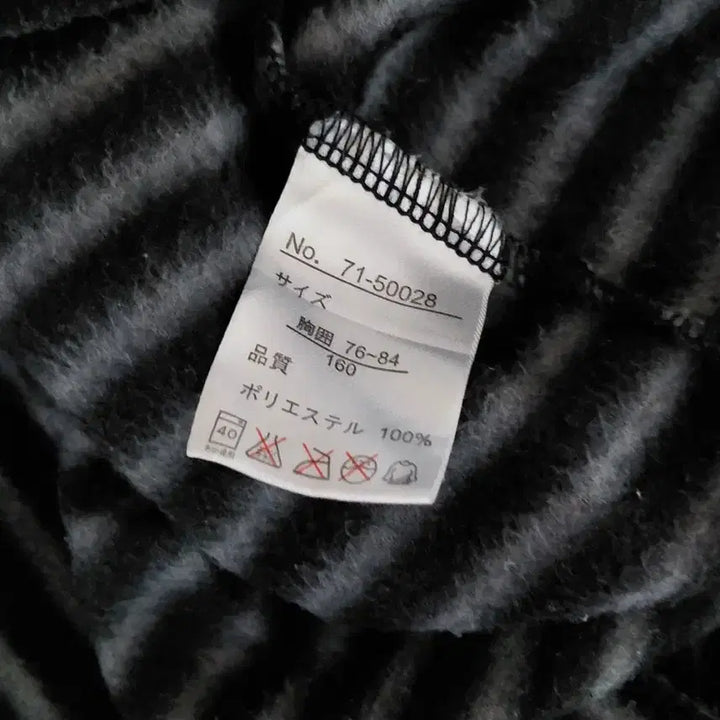 No. 71-50028
サイズ
胸囲 76~84
160
品質
ポリエステル 100%
40